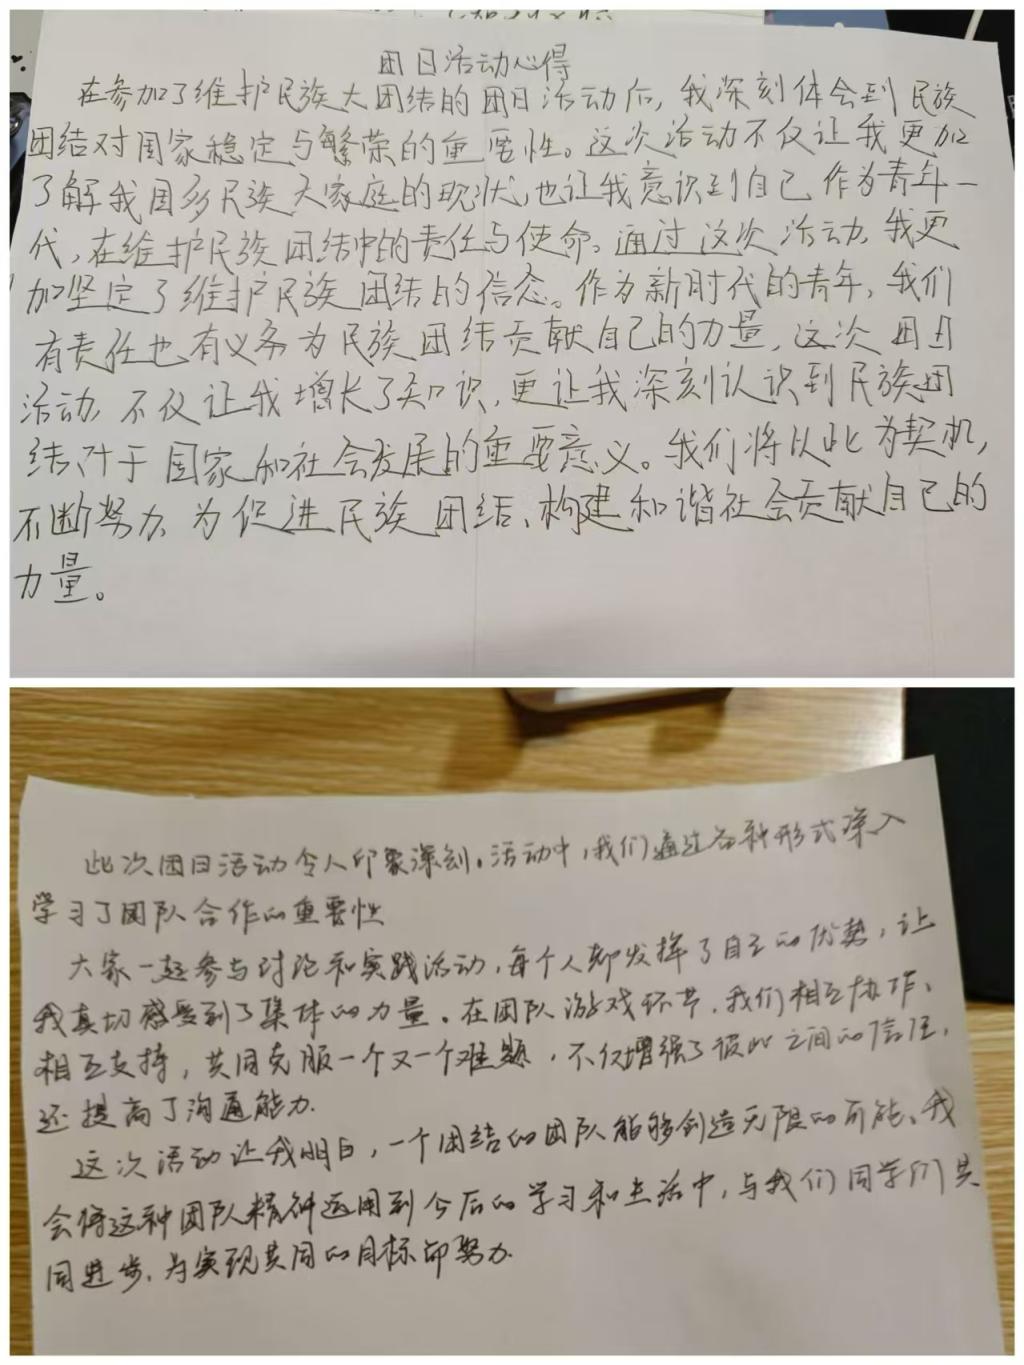 团日活动心得
在参加了维护民族大团结的团日活动后，我深刻体会到民族
团结对国家稳定与繁荣的重要性。这次活动不仅让我更加
了解我国多民族大家庭的现状，也让我意识到自己作为青年一
代，在维护民族团结中的责任与使命。通过这次活动，我更
加坚定了维护民族团结的信念。作为新时代的青年，我们
有责任也有义务为民族团结贡献自己的力量，这次团日
活动，不仅让我增长了知识，更让我深刻认识到民族团
结对于国家和社会发展的重要意义。我们将以此为契机，
不断努力，为促进民族团结、构建和谐社会贡献自己的
力量。
此次团日活动令人印象深刻。活动中，我们通过各种形式深入
学习了团队合作的重要性
大家一起参与讨论和实践活动，每个人都发挥了自己的优势，让
我真切感受到了集体的力量。在团队游戏环节，我们相互协作、
相互支持，共同克服一个又一个难题，不仅增强了彼此之间的信任，
还提高了沟通能力.
这次活动让我明白，一个团结的团队能够创造无限的可能、我
会将这种团队精神运用到今后的学习和生活中，与我们同学们共
同进步、为实现共同的目标而努力.